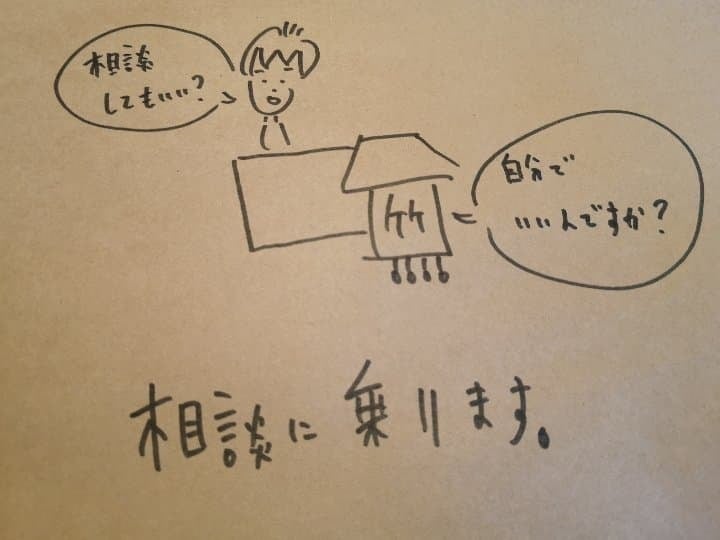 相談
してもいい?
自分で
いいんですか?
竹
相談に乗ります。